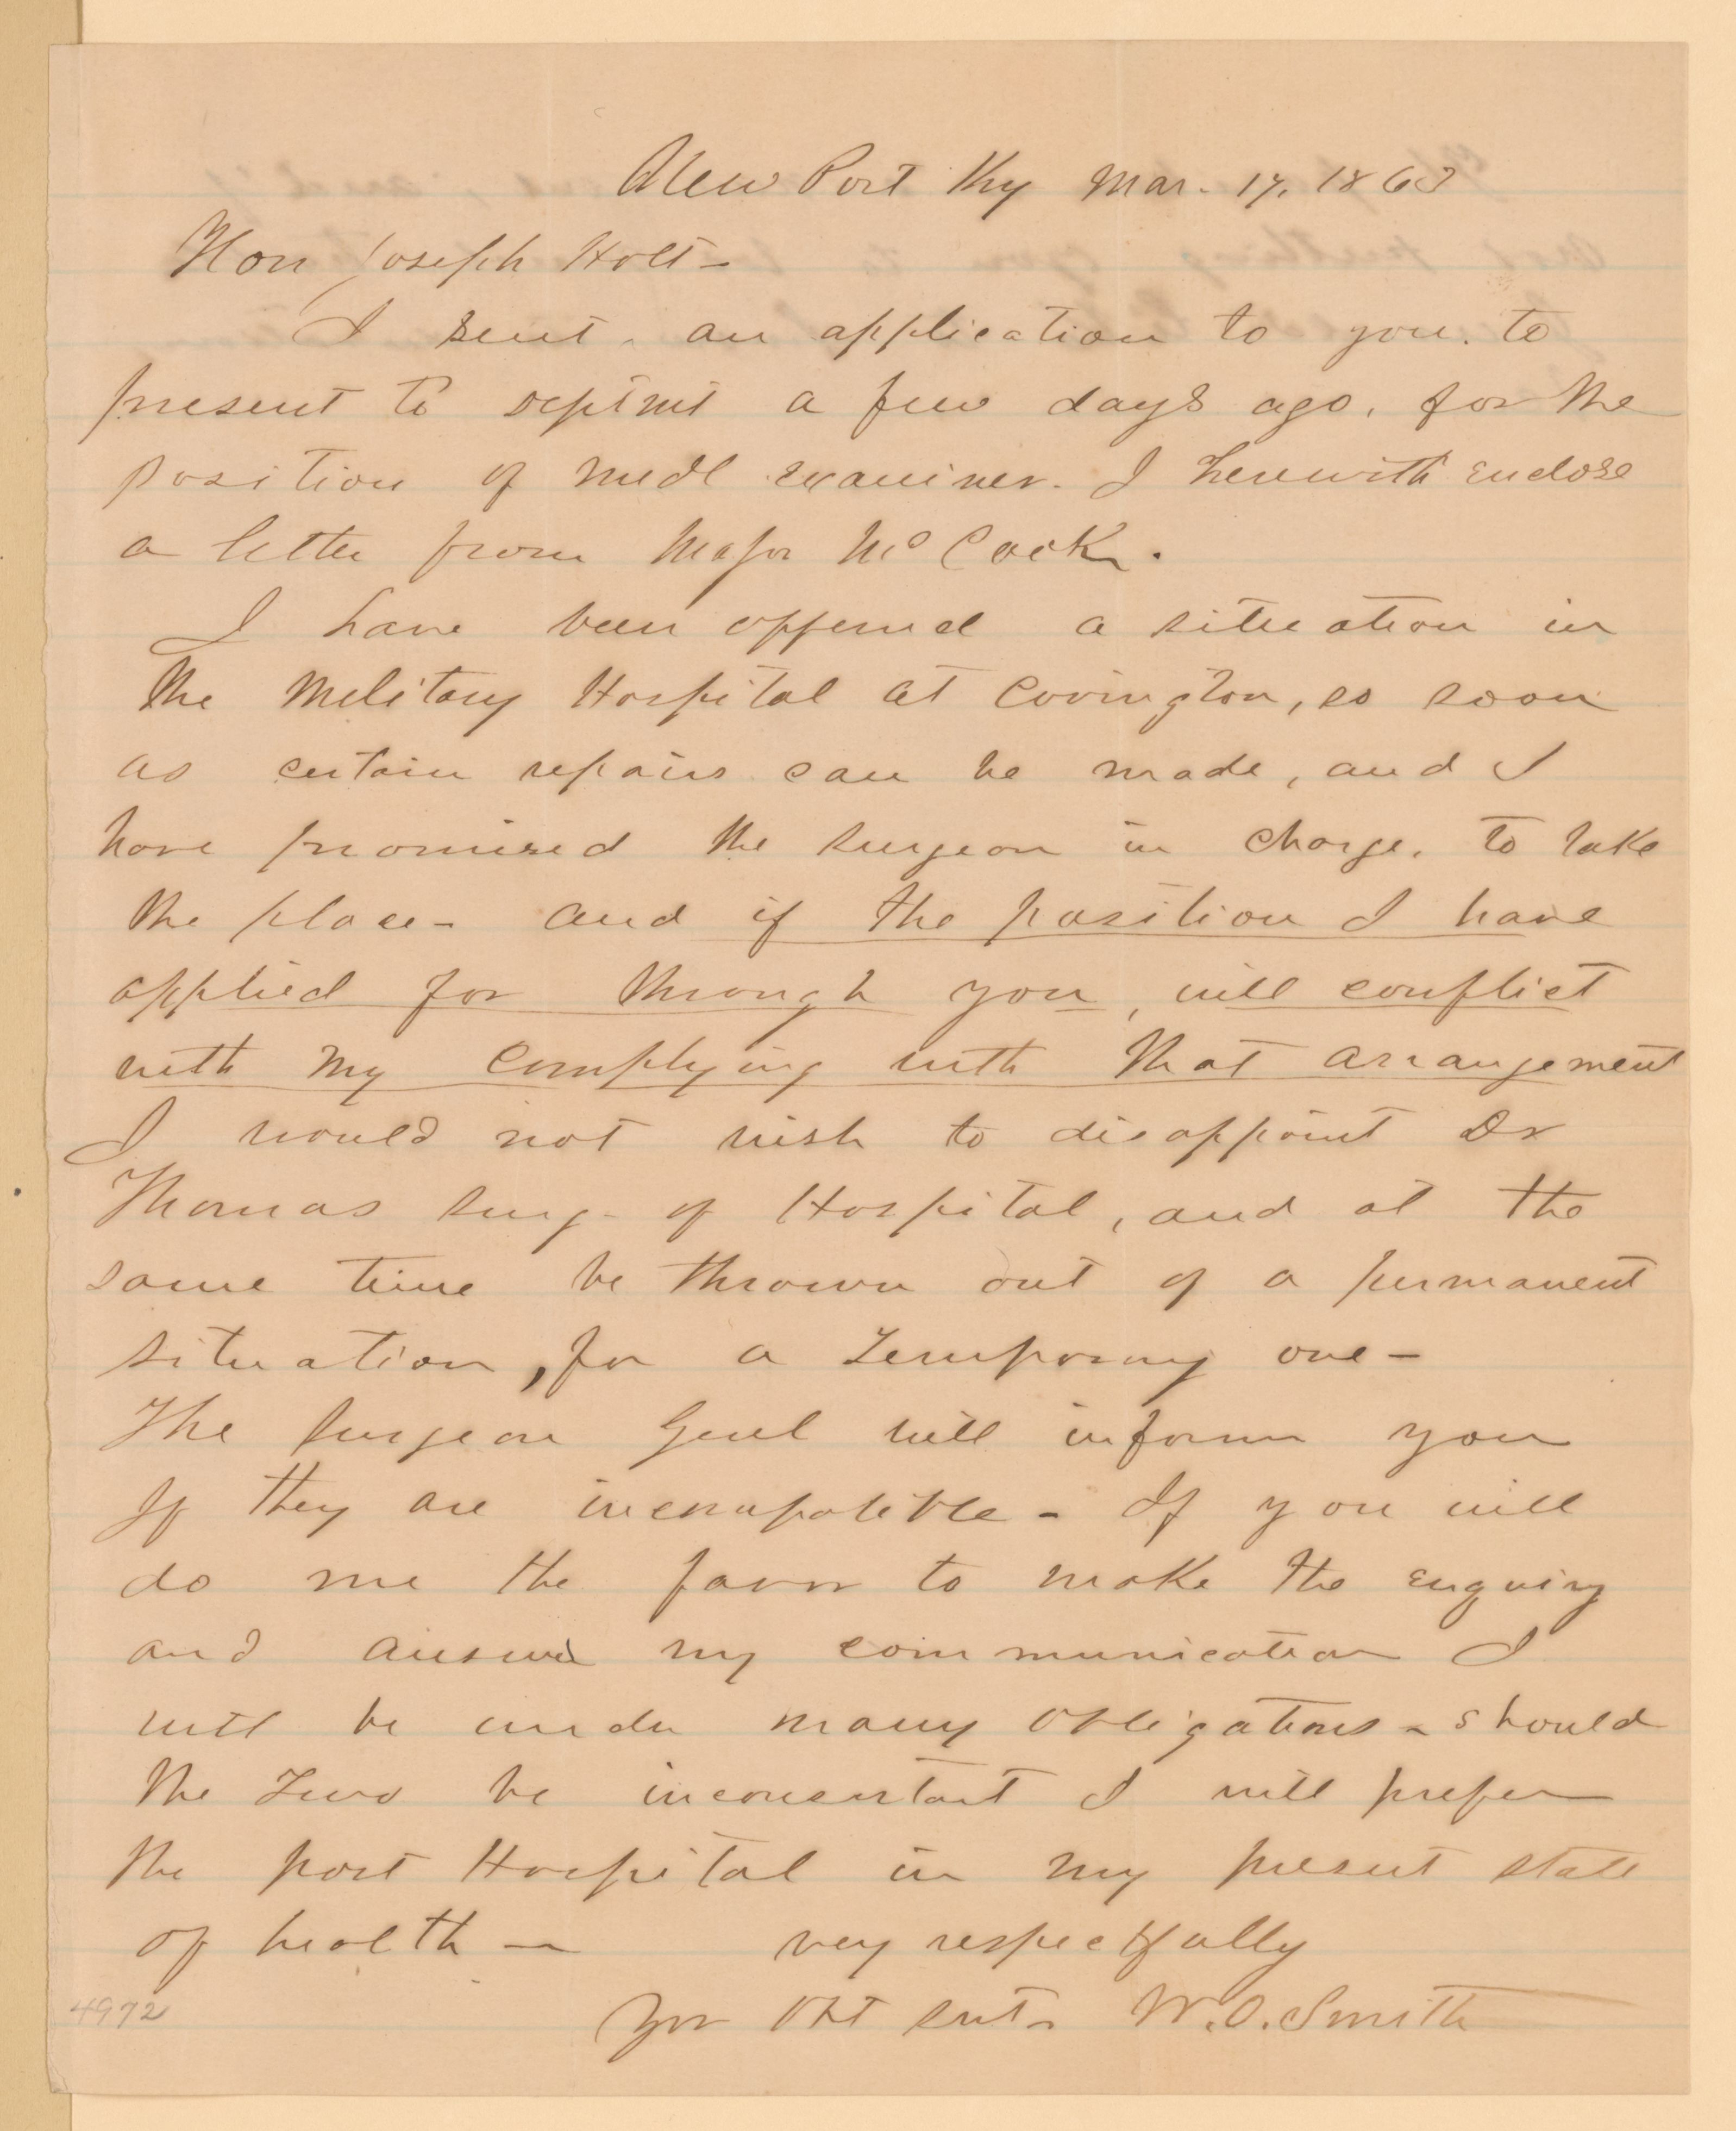 New Port Ky Mar. 17, 1863
Hon Joseph Holt -
I sent an application to you. to
present to deptmt a few days ago, for the
position of medl examiner. I herewith enclose
a letter from Major McCook.
I have been offered a situation in
the Military Hospital at Covington, so soon
as certain repairs can be made, and I
have promised the surgeon in charge, to take
the place - and if the position I have
applied for through you, will conflict
with my complying with that arrangement
I would not wish to disappoint Dr
Thomas Surg - of Hospital, and at the
same time be thrown out of a permanent
situation, for a temporary one -
The Surgeon Genl will inform you
If they are incompatible - If you will
do me the favor to make the enquiry
and answer my communication I
will be under many obligations - should
the two be inconsistant I will prefer
the post Hospital in my present state
of health - very respectfully
Yor Obt Svt - W. O. Smith
4972